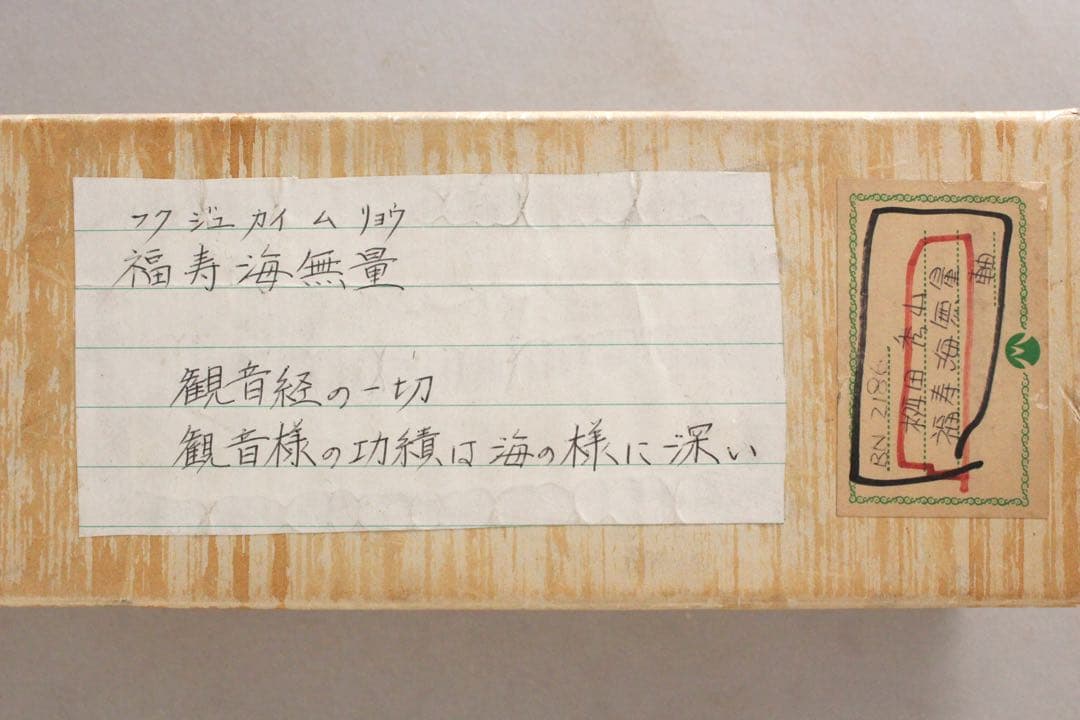 フクジュカイムリョウ
福寿海無量
観音経の一切
観音様の功績は海の様に深い
BN 2186
福寿海無量
軸